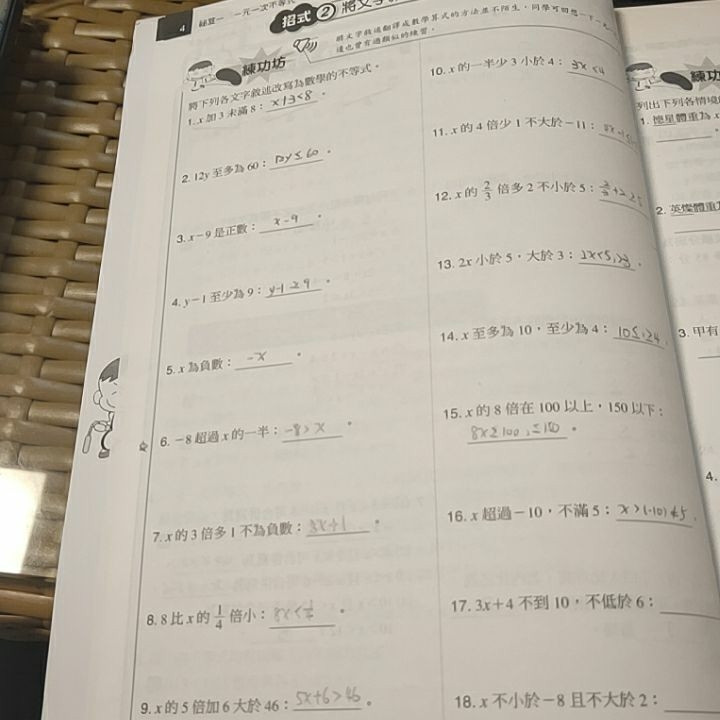 4 秘笈一 一元一次不等式
招式 ② 將文字
將文字敘述翻譯成數學算式的方法並不陌生,同學可回想一下,
這也曾有過類似的練習。
練功坊
將下列各文字敘述改寫為數學的不等式。
1. x 加 3 未滿 8:x+3<8。
2. 12y 至多為 60:12y≤60。
3. x-9 是正數:x-9。
4. y-1 至少為 9:y-1≥9。
5. x 為負數:-x。
6. -8 超過 x 的一半:-8>x。
7. x 的 3 倍多 1 不為負數:3x+1。
8. 8 比 x 的 1/4 倍小:8x<1/4。
9. x 的 5 倍加 6 大於 46:5x+6>46。
10. x 的一半少 3 小於 4:3x<4
11. x 的 4 倍少 1 不大於-11:
12. x 的 2/3 倍多 2 不小於 5:2/3+2≥5
13. 2x 小於 5,大於 3:2x<5,>3。
14. x 至多為 10,至少為 4:10≤,≥4。
15. x 的 8 倍在 100 以上,150 以下:
8x≥100,≤150。
16. x 超過-10,不滿 5:x>(-10)≠5。
17. 3x+4 不到 10,不低於 6:
18. x 不小於-8 且不大於 2:
練功
列出下列各情境
1. 德星體重為 x
2. 英燦體重
3. 甲有
4.